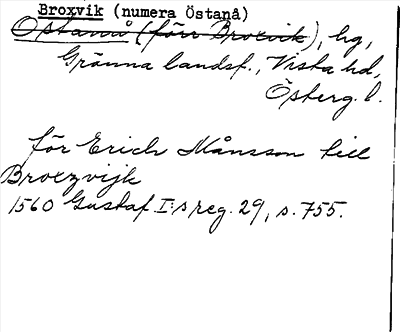 Broxvik (numera Östanå)
Östanå (förr Broxvik), hg,
Gränna landsf., Vista hd,
Österg. l.
för Erich Månsson till
Broczvijk
1560 Gustaf I:s reg. 29, s. 755.